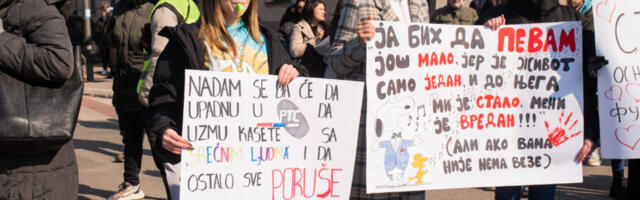 NADAM SE DA ĆE DA
UPADNU U РТС DA
UZMU KASETE SA
SREĆNIM LJUDIMA I DA
OSTALO SVE PORUŠE
ЈА БИХ ДА ПЕВАМ
ЈОШ МАЛО, ЈЕР ЈЕ ЖИВОТ
САМО ЈЕДАН, И ДО ЊЕГА
МИ ЈЕ СТАЛО, МЕНИ
ЈЕ ВРЕДАН!!!
(АЛИ АКО ВАМА
НИЈЕ НЕМА ВЕЗЕ)